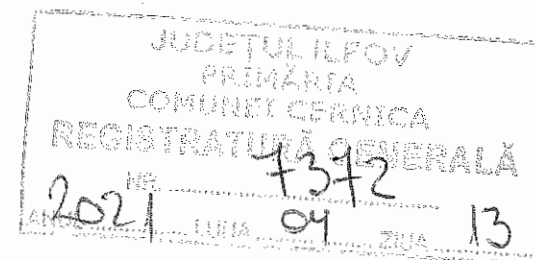 JUDEȚUL ILFOV
PRIMĂRIA
COMUNEI CERNICA
REGISTRATURĂ GENERALĂ
NR. 7372
ANUL 2021 LUNA 04 ZIUA 13